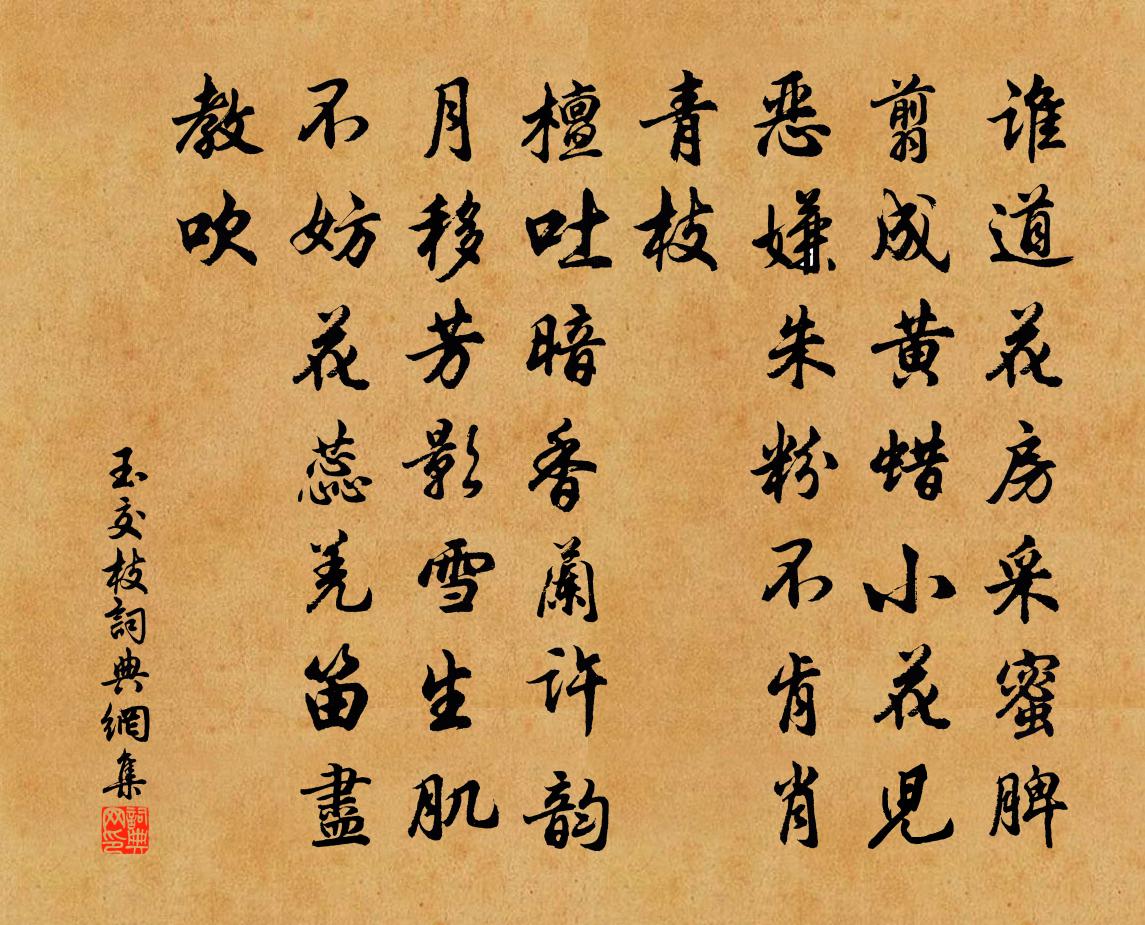 谁道花房采蜜脾
翦成黄蜡小花児
恶嫌朱粉不肯肖
青枝
檀吐暗香蘭许韵
月移芳影雪生肌
不妨花蕊羌笛盡
教吹
玉交枝詞典網集
詞典网印